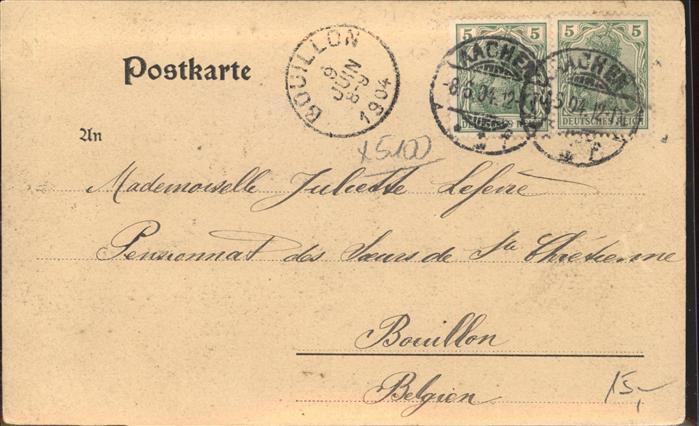 Postkarte
An
BOUILLON
9
JUIN
8-9
1904
5 5
5 5
AACHEN
-8.6.04.12-
AACHEN
6.04.12-
DEUTSCHES REICH
DEUTSCHES REICH
x5100
Mademoiselle Juliette Lefevre
Pensionnat des Sœurs de Ste Chrétienne
Bouillon
Belgien
15,-